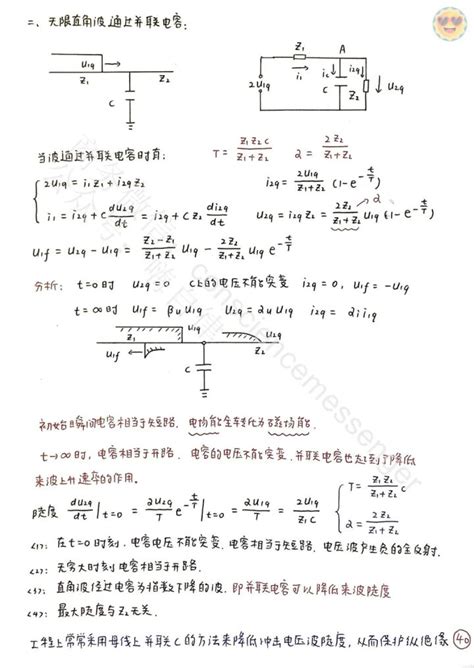 二、无限直角波通过并联电容:
U1q Z1 Z2 C
Z1 A i1 ic i2q 2U1q C Z2 U2q
当波通过并联电容时有:
T = Z1Z2C/(Z1+Z2) α = 2Z2/(Z1+Z2)
2U1q = i1Z1 + i2qZ2
i2q = 2U1q/(Z1+Z2) (1-e^(-t/T))
i1 = i2q + C dU2q/dt = i2q + CZ2 di2q/dt
U2q = i2qZ2 = 2Z2/(Z1+Z2) U1q (1-e^(-t/T)) α
U1f = U2q - U1q = (Z2-Z1)/(Z1+Z2) U1q - 2Z2/(Z1+Z2) U1q e^(-t/T)
分析: t=0时 U2q=0 C上的电压不能突变 i2q=0, U1f=-U1q
t=∞时 U1f=βuU1q U2q=αuU1q i2q=αii1q
U1q U2q Z1 Z2 U1f C
初始瞬间电容相当于短路, 电场能全转化为磁场能.
t→∞时, 电容相当于开路, 电容的电压不能突变. 并联电容也起到了降低
来波上升速率的作用.
陡度 dU2q/dt|t=0 = 2U1q/T e^(-t/T)|t=0 = 2U1q/T = 2U1q/(Z1C) { T = Z1Z2/(Z1+Z2) C
α = 2Z2/(Z1+Z2)
<1>: 在t=0时刻, 电容电压不能突变, 电容相当于短路, 电压波产生负的全反射.
<2>: 无穷大时刻电容相当于开路.
<3>: 直角波经过电容为指数下降的波, 即并联电容可以降低来波陡度
<4>: 最大陡度与Z2无关.
工程上常常采用母线上并联C的方法来降低冲击电压波陡度, 从而保护纵绝缘 40
consciencemessenger